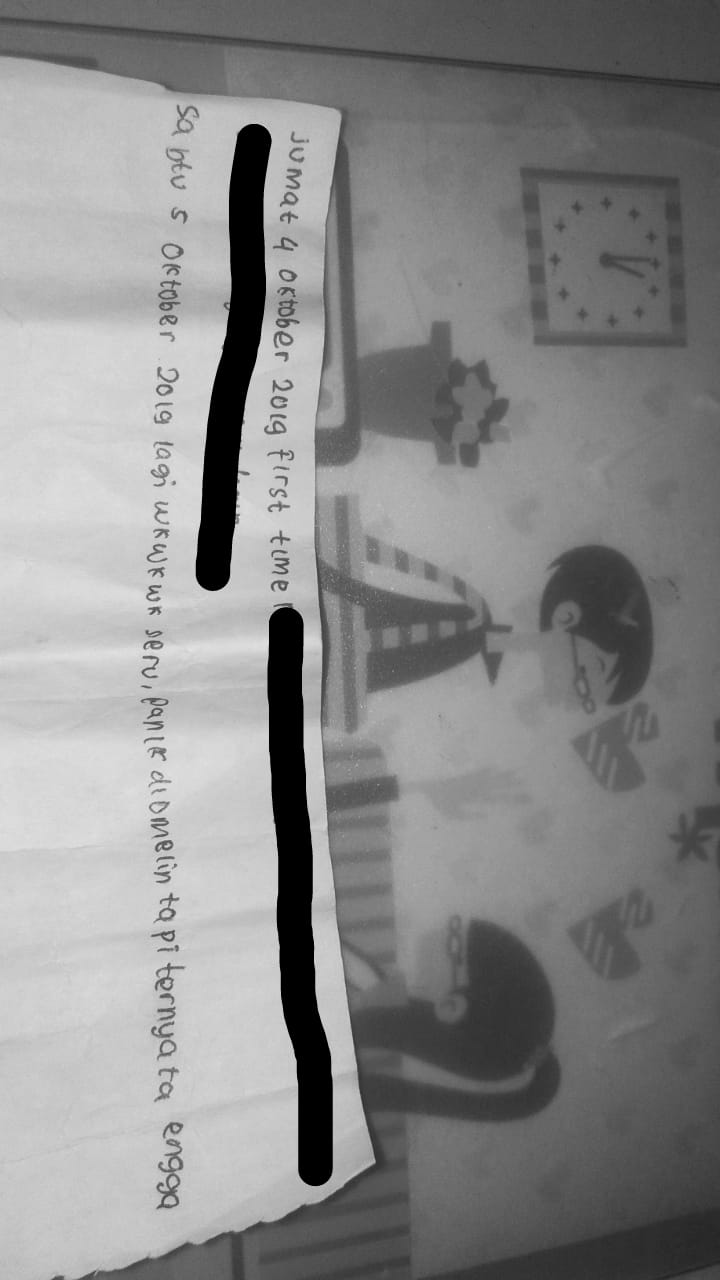 jumat 4 oktober 2019 first time
sabtu 5 oktober 2019 lagi wkwkwk seru, panik diomelin tapi ternyata engga